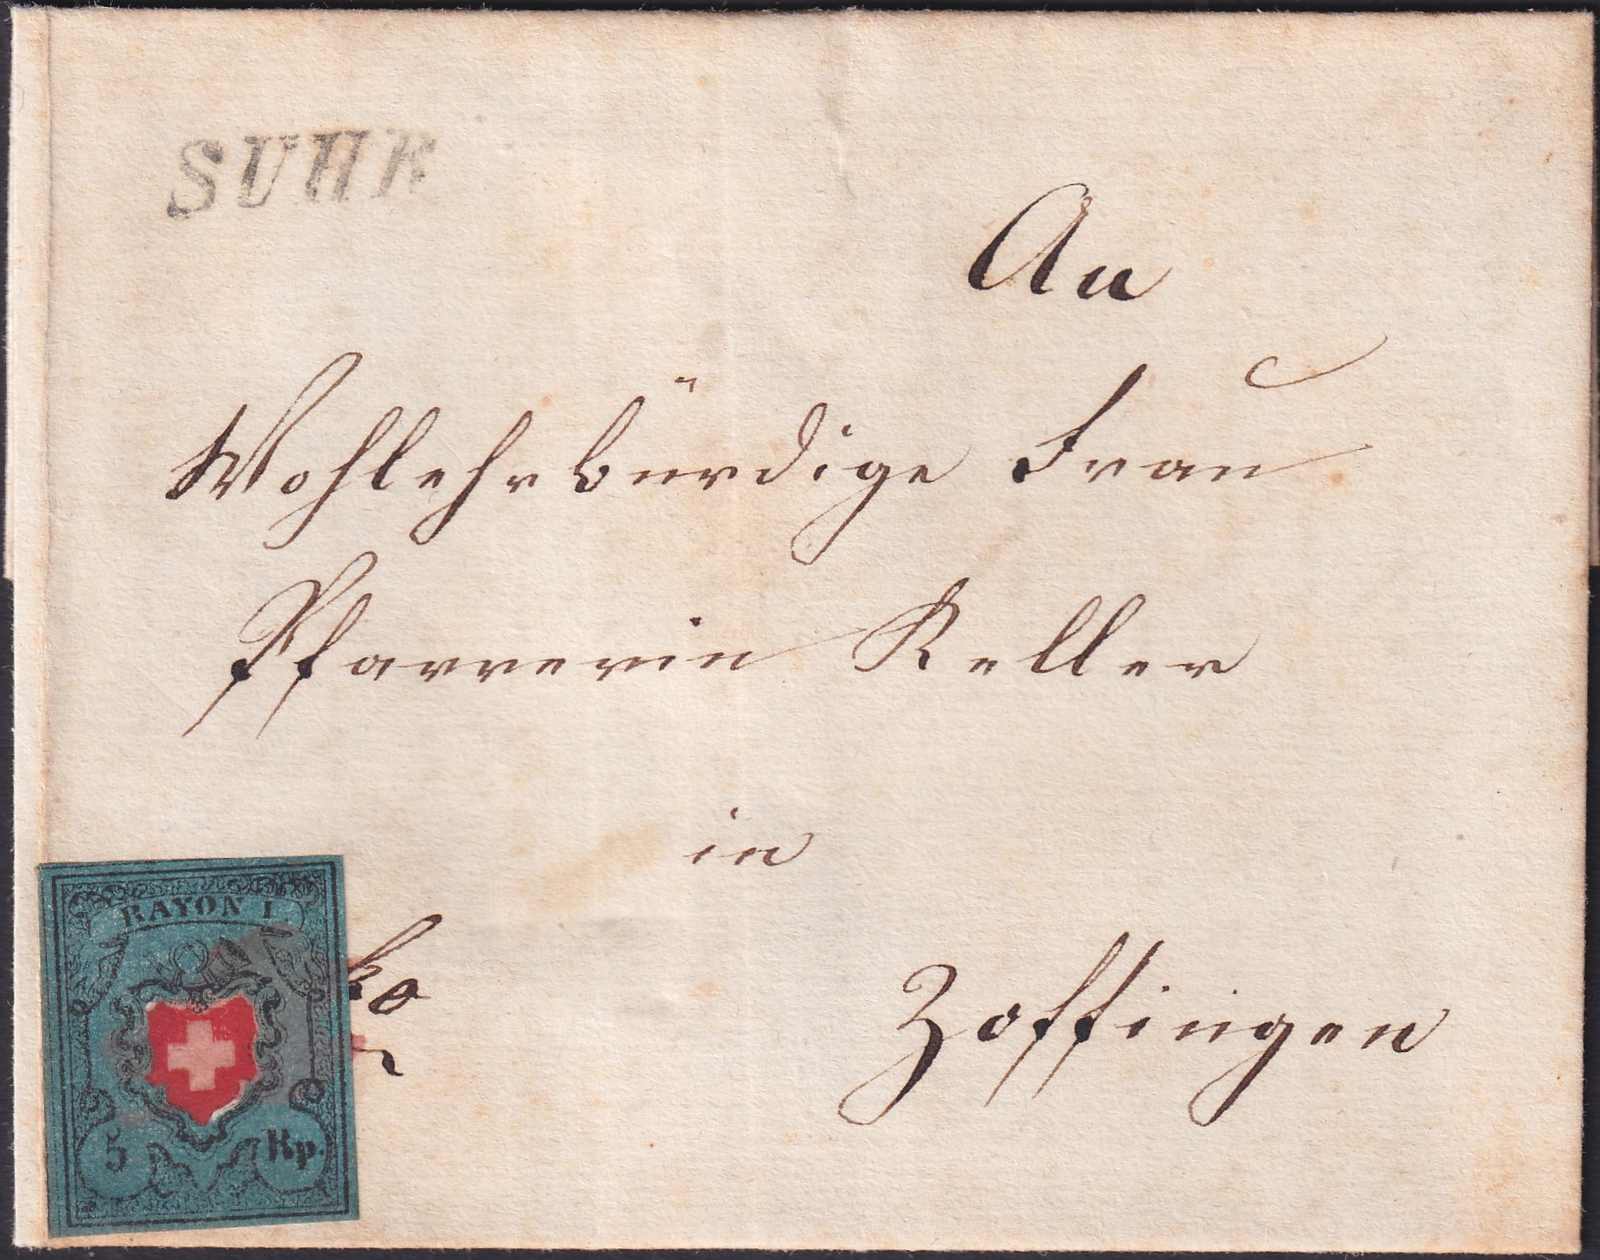 SUHR
An
Wohlehrbürdige Frau
Pfarrerin Keller
in
ko
Zoffingen
RAYON I
5 Rp.